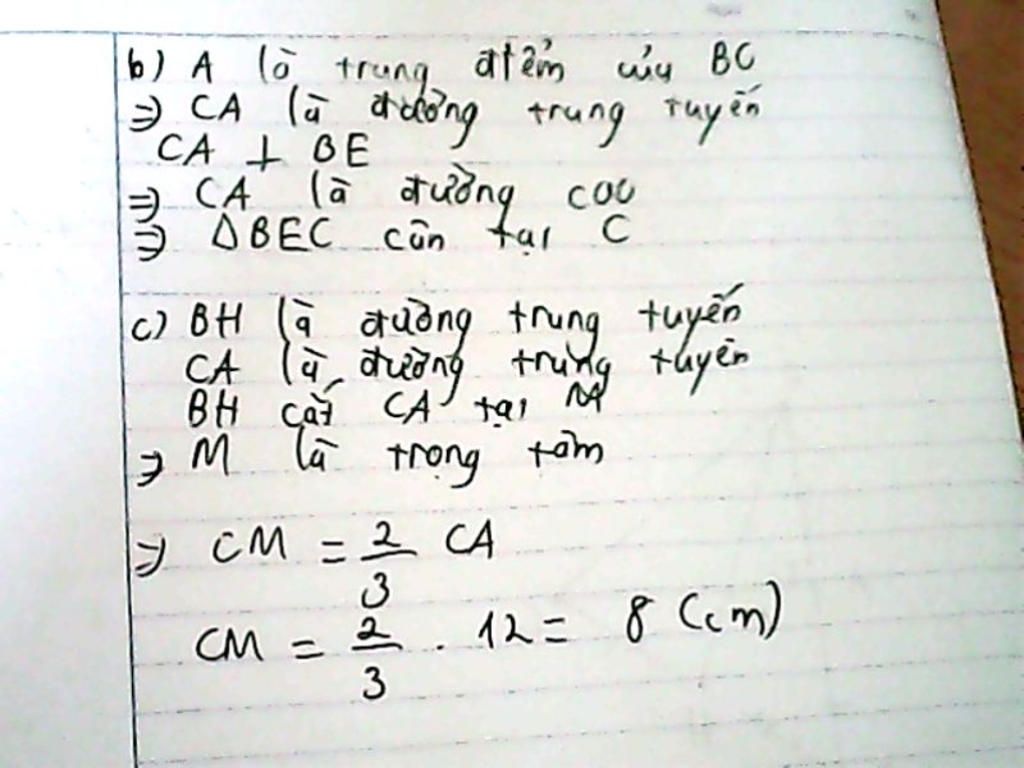 b) A là trung điểm của BC
⇒ CA là đường trung tuyến
CA ⊥ BE
⇒ CA là đường cao
⇒ ΔBEC cân tại C
c) BH là đường trung tuyến
CA là đường trung tuyến
BH cắt CA tại M
⇒ M là trọng tâm
⇒ CM = 2/3 CA
CM = 2/3 . 12 = 8 (cm)